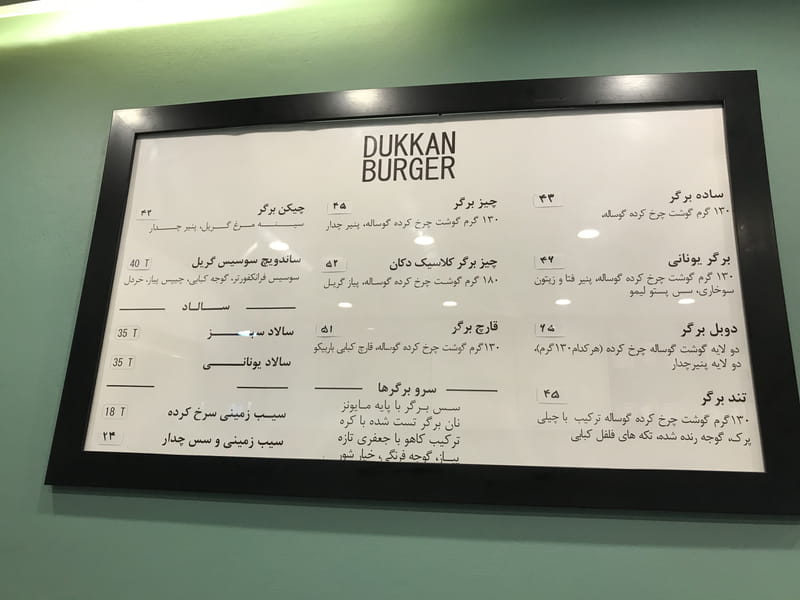 DUKKAN
BURGER
ساده برگر ۴۳
۱۳۰ گرم گوشت چرخ کرده گوساله،
برگر یونانی ۴۶
۱۳۰ گرم گوشت چرخ کرده گوساله، پنیر فتا و زیتون
سوخاری، سس پستو لیمو
دوبل برگر ۶۵
دو لایه گوشت گوساله چرخ کرده (هرکدام۱۳۰گرم)،
دو لایه پنیرچدار
تند برگر ۴۵
۱۳۰گرم گوشت چرخ کرده گوساله ترکیب با چیلی
پرک، گوجه رنده شده، تکه های فلفل کبابی
چیز برگر ۴۵
۱۳۰ گرم گوشت چرخ کرده گوساله، پنیر چدار
چیز برگر کلاسیک دکان ۵۲
۱۸۰ گرم گوشت چرخ کرده گوساله، پیاز گریل
قارچ برگر ۵۱
۱۳۰گرم گوشت چرخ کرده گوساله، قارچ کبابی باربیکو
سرو برگرها
سس برگر با پایه مایونز
نان برگر تست شده با کره
ترکیب کاهو با جعفری تازه
پیاز، گوجه فرنگی، خیار شور
چیکن برگر ۴۲
سینه مرغ گریل، پنیر چدار
ساندویچ سوسیس گریل 40 T
سوسیس فرانکفورتر، گوجه کبابی، چیپس پیاز، خردل
سالاد
سالاد سبز 35 T
سالاد یونانی 35 T
سیب زمینی سرخ کرده 18 T
سیب زمینی و سس چدار ۲۴